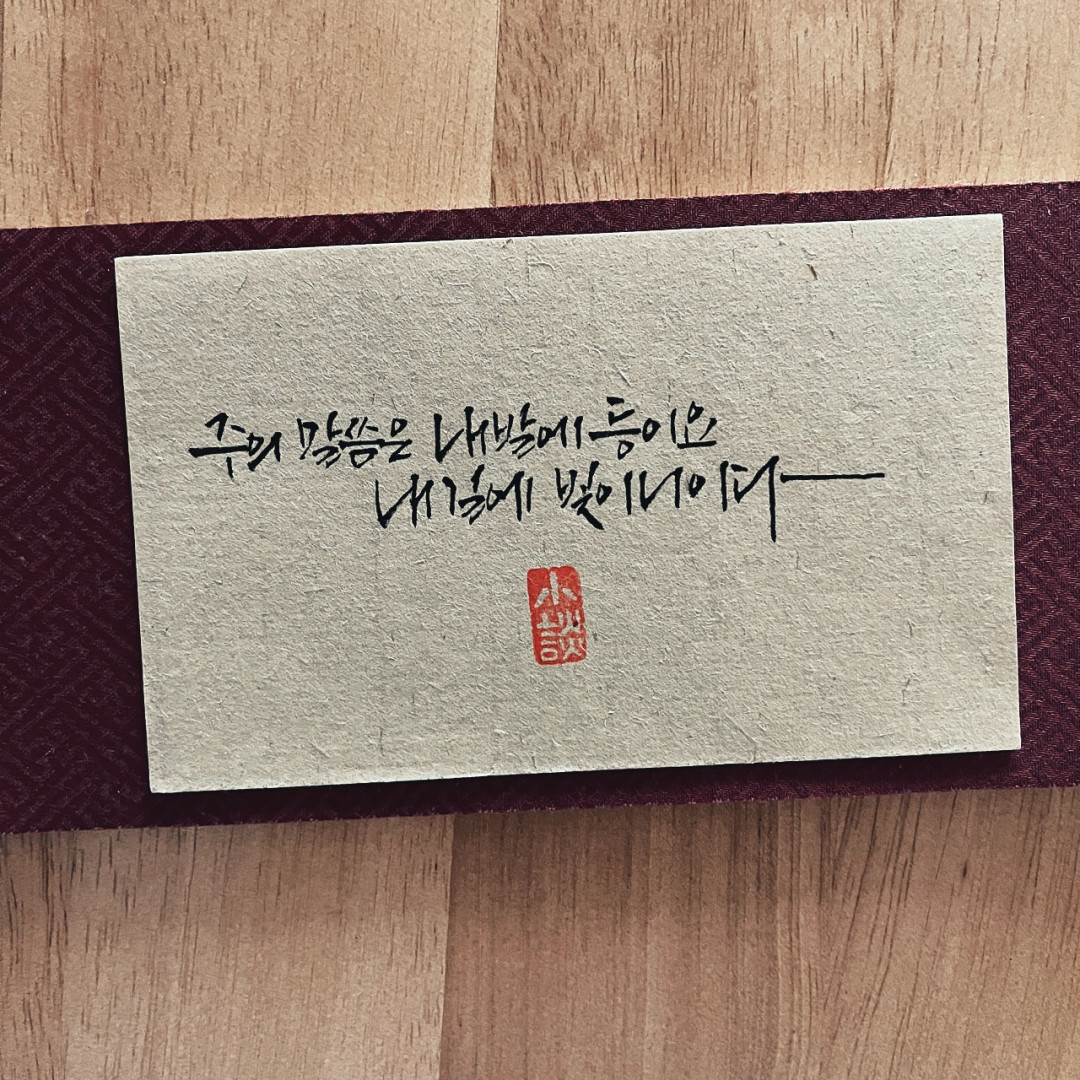 주의 말씀은 내 발에 등이요
내 길에 빛이니이다
小談